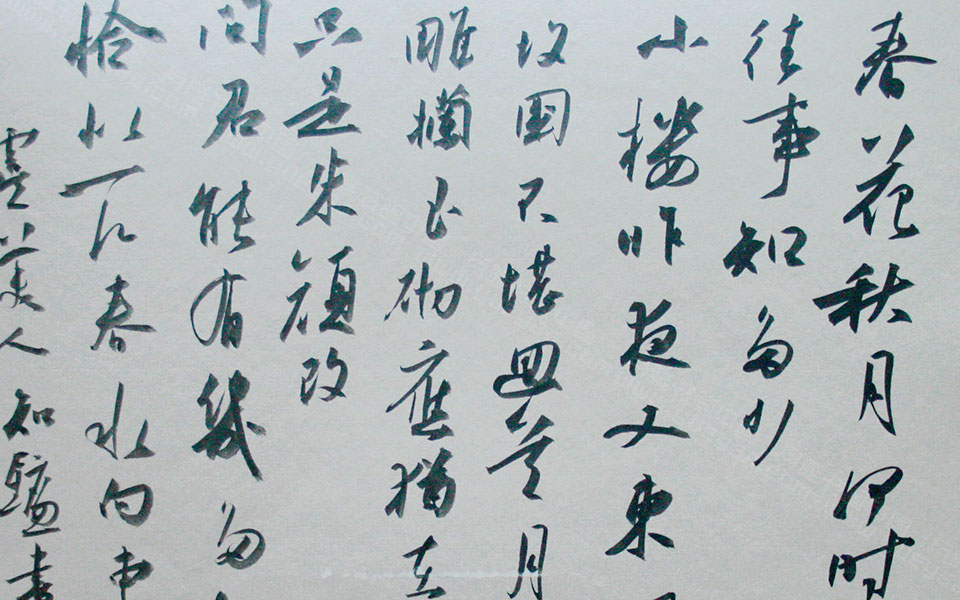 春花秋月何时
往事知多少
小楼昨夜又東
故國不堪回首月
雕欄玉砌應猶在
只是朱顏改
問君能有幾多
恰似一江春水向東
虞美人 知 書